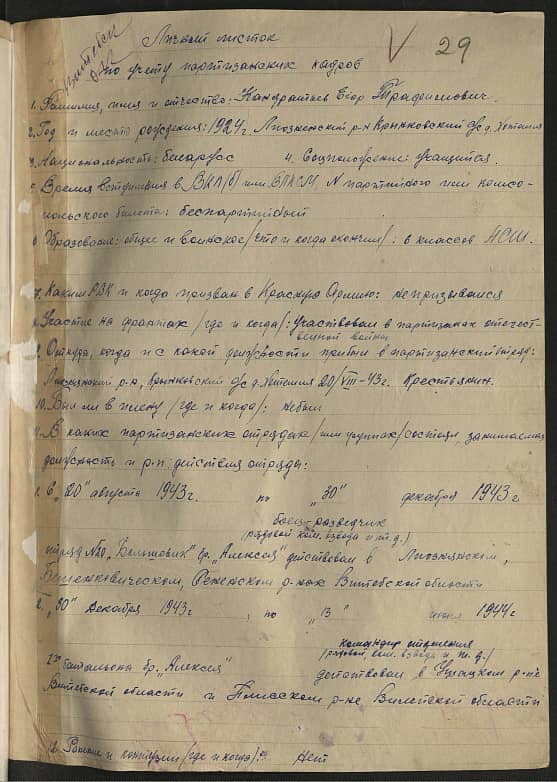 Личный листок
29
по учету партизанских кадров
1. Фамилия, имя и отчество: Кандратьев Егор Трафимович.
2. Год и место рождения: 1924г. Лиозненский р-н Крынковский с/с д.
3. Национальность: беларусс 4. Соцположение: учащийся.
5. Время вступления в ВКП/б/ или ВЛКСМ, N партийного или комсо-
мольского билета: беспартийный
6. Образование: общее и воинское /что и когда окончил/: 6 классов НСШ.
7. Каким РВК и когда призван в Красную Армию: не призывался
8. Участие на фронтах /где и когда/: Участвовал в партизанах отечест-
венной войны
9. Откуда, когда и с какой должности прибыл в партизанский отряд:
Лиозненский р-н, Крынковский с/с д. 20/VIII-43г. Крестьянин.
10. Был ли в плену /где и когда/: небыл
11. В каких партизанских отрядах /или группах/ состоял, занимаемая
должность и р-н действия отряды:
1. С "20" августа 1943г. по "30" декабря 1943г
боец-разведчик
(рядовой ком. взвода и т.д.)
отряд №10 "Большевик" бр. "Алексея" действовал в Лиозненском,
Бешенковическом, р-нах Витебской области
2. "30" Декабря 1943г. по "13" июня 1944г
командир отделения
/рядовой, ком. взвода и т.д./
батальона бр. "Алексея" действовал в Ушацком р-не
Витебской области и Плисском р-не Вилейской области
12. Ранения и контузии /где и когда/: Нет